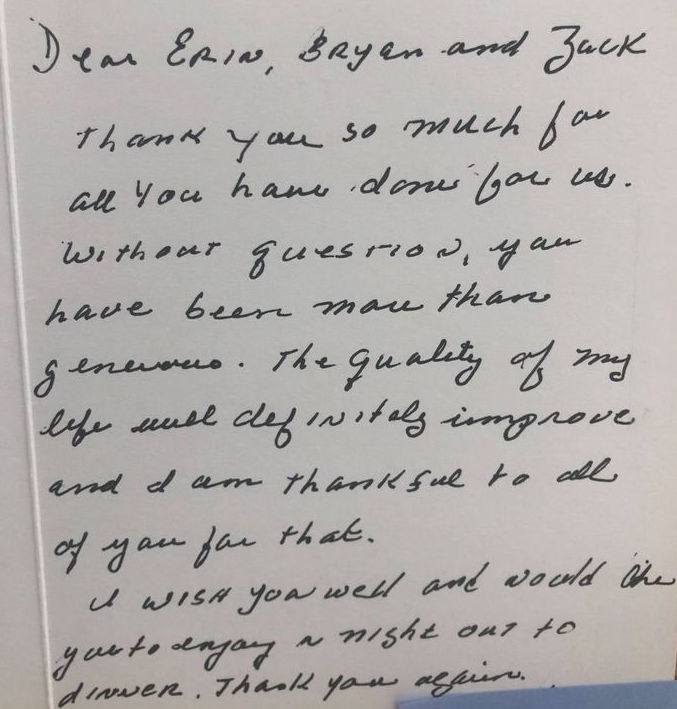 Dear Erin, Bryan and Zack
Thank you so much for
all you have done for us.
Without question, you
have been more than
generous. The quality of my
life will definitely improve
and I am thankful to all
of you for that.
I wish you well and would like
you to enjoy a night out to
dinner. Thank you again.